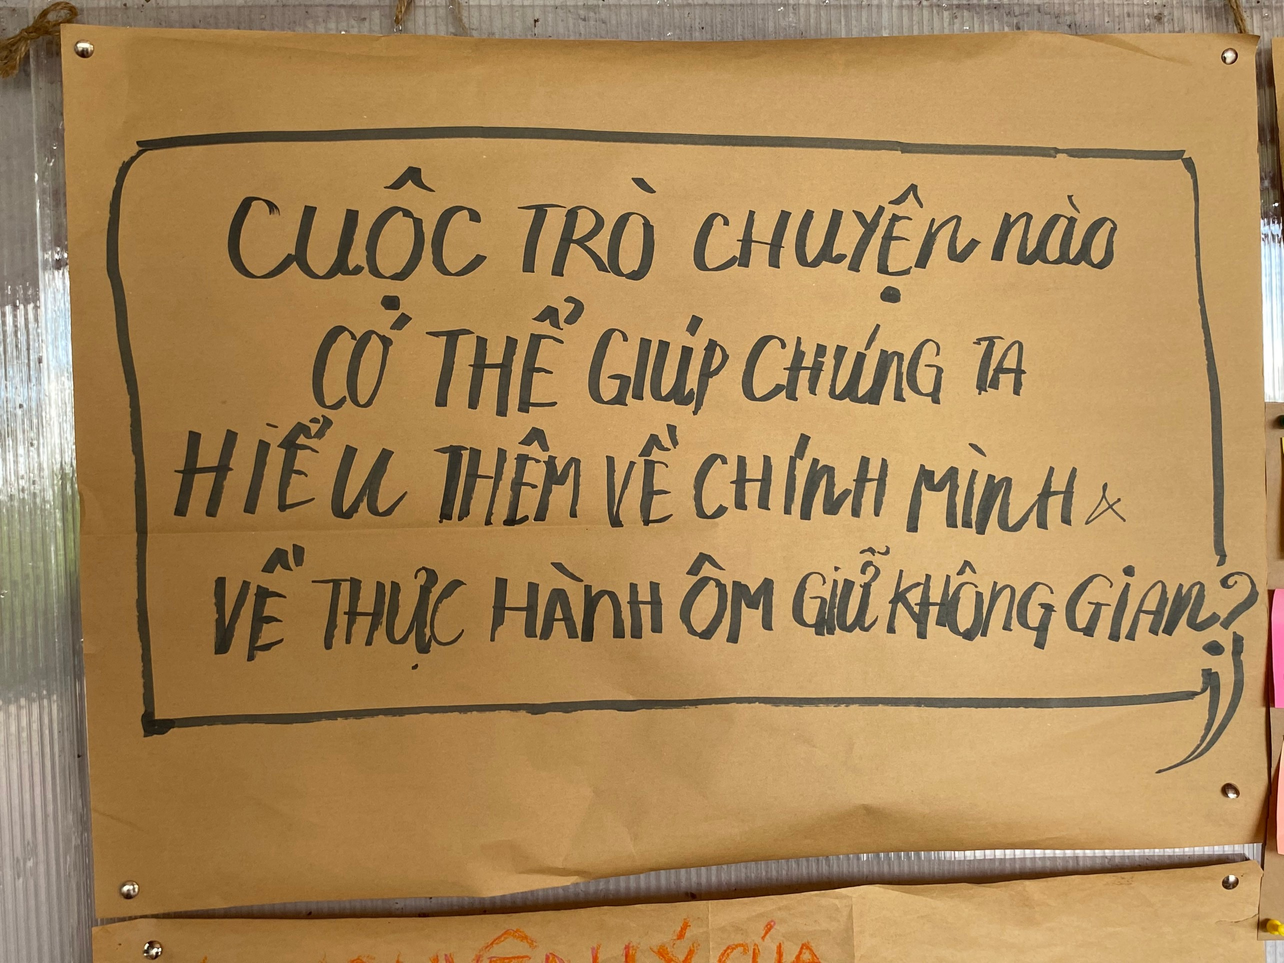 CUỘC TRÒ CHUYỆN nào
CÓ THỂ GIÚP CHÚNG TA
HIỂU THÊM VỀ CHÍNH MÌNH &
VỀ THỰC HÀNH ÔM GIỮ KHÔNG GIAN?
LÝ CỦA